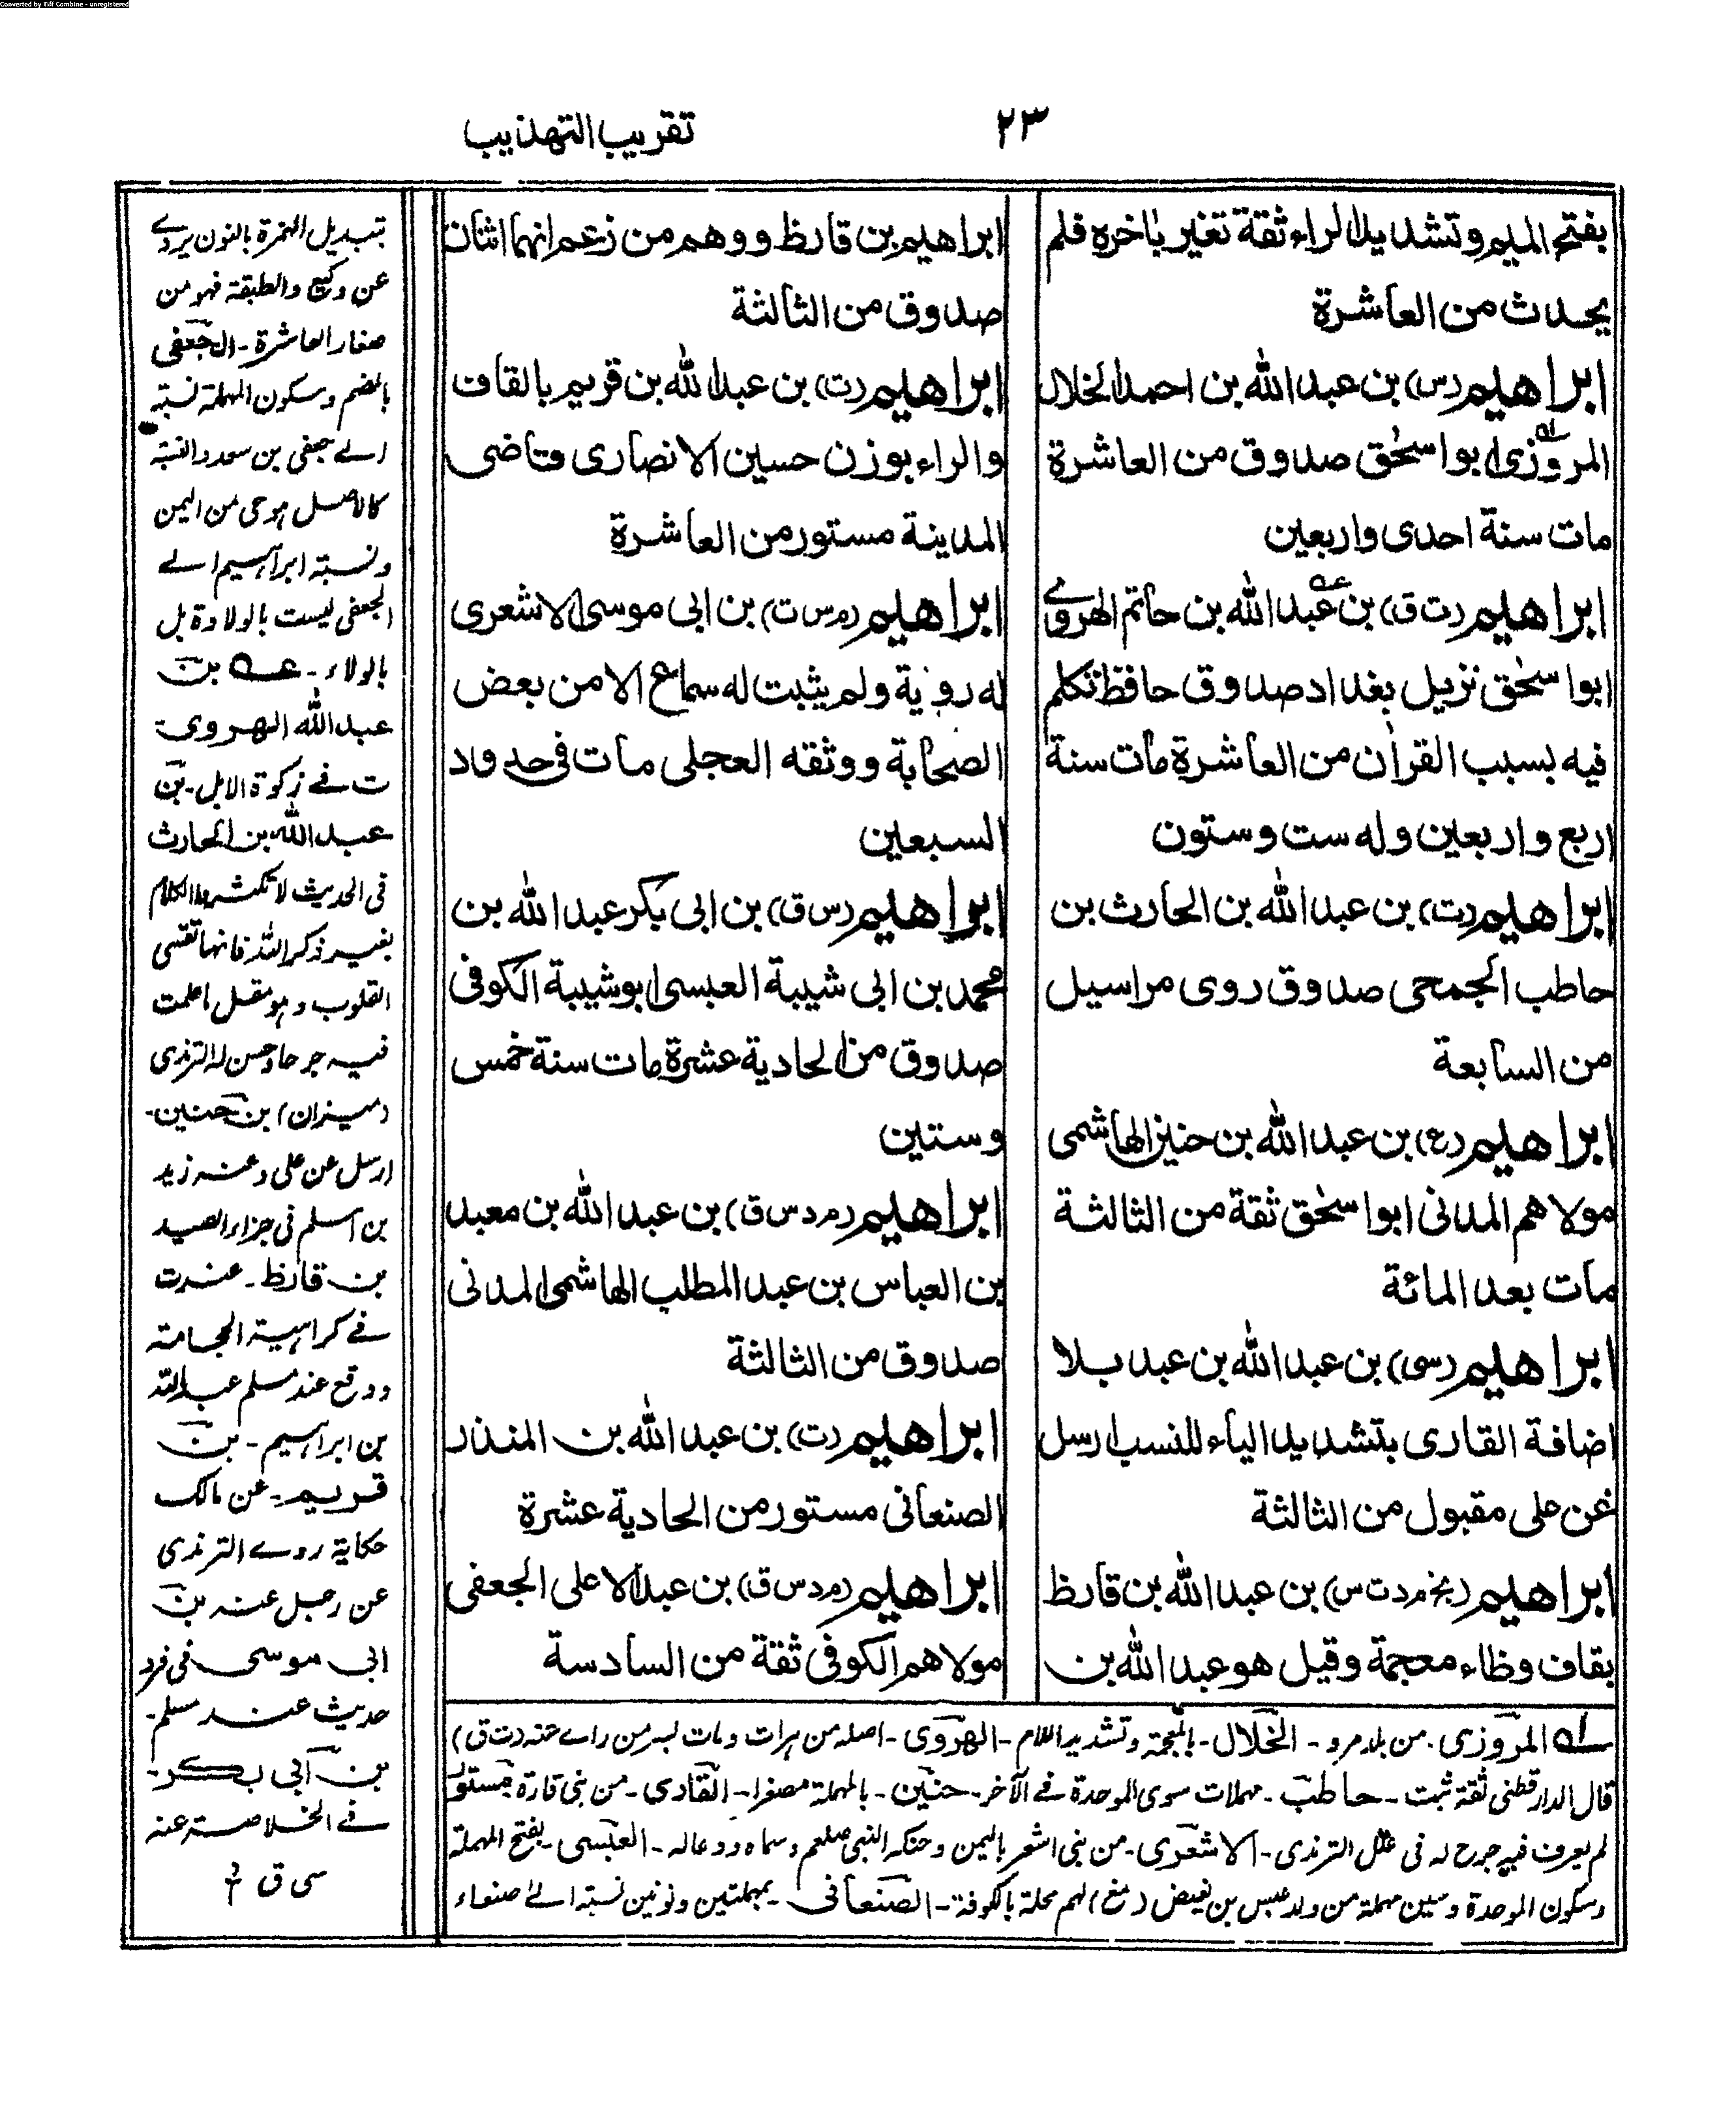 Converted by Tiff Combine - unregistered
٢٣
تقريب التهذيب
بفتح الميم وتشديد الراء ثقة تغير بأخره فلم
يحدث من العاشرة
ابراهيم (س) بن عبد الله بن احمد الخلال
المروزى ابو اسحٰق صدوق من العاشرة
مات سنة احدى واربعين
ابراهيم (ت ق) بن عبد الله بن حاتم الهروے
ابو اسحٰق نزيل بغداد صدوق حافظ تكلم
فيه بسبب القراٰن من العاشرة مات سنة
اربع واربعين وله ست وستون
ابراهيم (ت) بن عبد الله بن الحارث بن
حاطب الجمحى صدوق روى مراسيل
من السابعة
ابراهيم (ع) بن عبد الله بن حنين الهاشمى
مولاهم المدنى ابو اسحٰق ثقة من الثالثة
مات بعد المائة
ابراهيم (سى) بن عبد الله بن عبد بلا
اضافة القارى بتشديد الياء للنسب ارسل
عن على مقبول من الثالثة
ابراهيم (بخ م د ت س) بن عبد الله بن قارظ
بقاف وظاء معجمة وقيل هو عبد الله بن
ابراهيم بن قارظ ووهم من زعم انهما اثنان
صدوق من الثالثة
ابراهيم (ت) بن عبد الله بن قريم بالقاف
والراء بوزن حسين الانصارى قاضى
المدينة مستور من العاشرة
ابراهيم (م س ت) بن ابى موسى الاشعرى
له روئية ولم يثبت له سماع الا من بعض
الصحابة ووثقه العجلى مات فى حدود
السبعين
ابراهيم (س ق) بن ابى بكر عبد الله بن
محمد بن ابى شيبة العبسى ابو شيبة الكوفى
صدوق من الحادية عشرة مات سنة خمس
وستين
ابراهيم (م د س ق) بن عبد الله بن معبد
بن العباس بن عبد المطلب الهاشمى المدنى
صدوق من الثالثة
ابراهيم (ت) بن عبد الله بن المنذر
الصنعانى مستور من الحادية عشرة
ابراهيم (م د س ق) بن عبد الاعلى الجعفى
مولاهم الكوفى ثقة من السادسة
تبديل الهمزة بالنون يروے
عن وكيع والطبقة فهو من
صغار العاشرة - الجعفى
بالضم وسكون المهملة نسبة
الے جعفى بن سعد والنسبة
كالاصل هو حى من اليمن
ونسبة ابراهيم الے
الجعفى ليست بالولادة بل
بالولاء - عــه بن
عبد الله الهروى
ت فے زكوة الابل - بن
عبد الله بن الحارث
فى الحديث لا تكثروا الكلام
بغير ذكر الله فانها تقسى
القلوب وهو مقل ما علمت
فيه جرحا وحسن له الترمذى
(ميزان) بن حنين -
ارسل عن على وعنه زيد
بن اسلم فى جزاء الصيد
بن قارظ - عند ت
فے كراهية الحجامة
ووقع عند مسلم عبد الله
بن ابراهيم - بن
قريم - عن مالك
حكاية روے الترمذى
عن رجل عنه بن
ابى موسى فى فرد
حديث عند مسلم -
بن ابى بكر -
فے الخلاصة عنه
سى ق
لــه المروزى - من بلاد مرو - الخلال - بالمعجمة وتشديد اللام - الهروى - اصله من هرات ومات بسر من راے عنه (ت ق)
قال الدارقطنى ثقة ثبت - حاطب - مهملات سوى الموحدة فے الآخر - حنين - بالمهملة مصغرا - القارى - من بنى قارة مستور
لم يعرف فيه جرح له فى علل الترمذى - الاشعرى - من بنى اشعر باليمن وحنكه النبى صلعم وسماه ودعا له - العبسى - بفتح المهملة
وسكون الموحدة وسين مهملة من ولد عبس بن بغيض (مغ) لهم محلة بالكوفة - الصنعانى - بمهملتين ونونين نسبة الے صنعاء